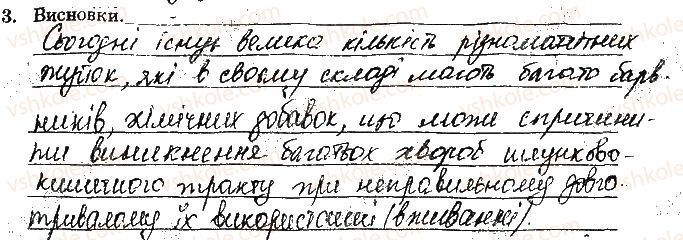 3. Висновки.
Сьогодні існує велика кількість різноманітних
жуйок, які в своєму складі мають багато барв
ників, хімічних добавок, що може спричини-
ти виникнення багатьох хвороб шлунково-
кишечного тракту при неправильному довго
тривалому їх використанні (вживанні).